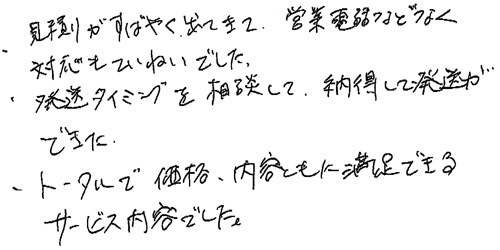 ・見積りがすばやく出てきて、営業電話などなく
対応もていねいでした。
・発送タイミングを相談して、納得して発送が
できた。
・トータルで価格、内容ともに満足できる
サービス内容でした。